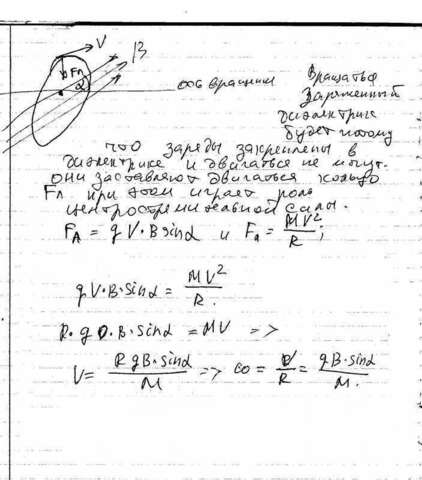 V
B
Fл
α
ось вращения
Вращаться
Заряженный
диэлектрик
будет потому
что заряды закреплены в
диэлектрике и двигаться не могут.
они заставляют двигаться кольцо
Fл при этом играет роль
центростремительной силы.
Fл = qV·Bsinα и Fл = MV²/R;
qV·B·sinα = MV²/R.
R·q·B·sinα = MV =>
V = RqB·sinα/M => ω = V/R = qB·sinα/M.